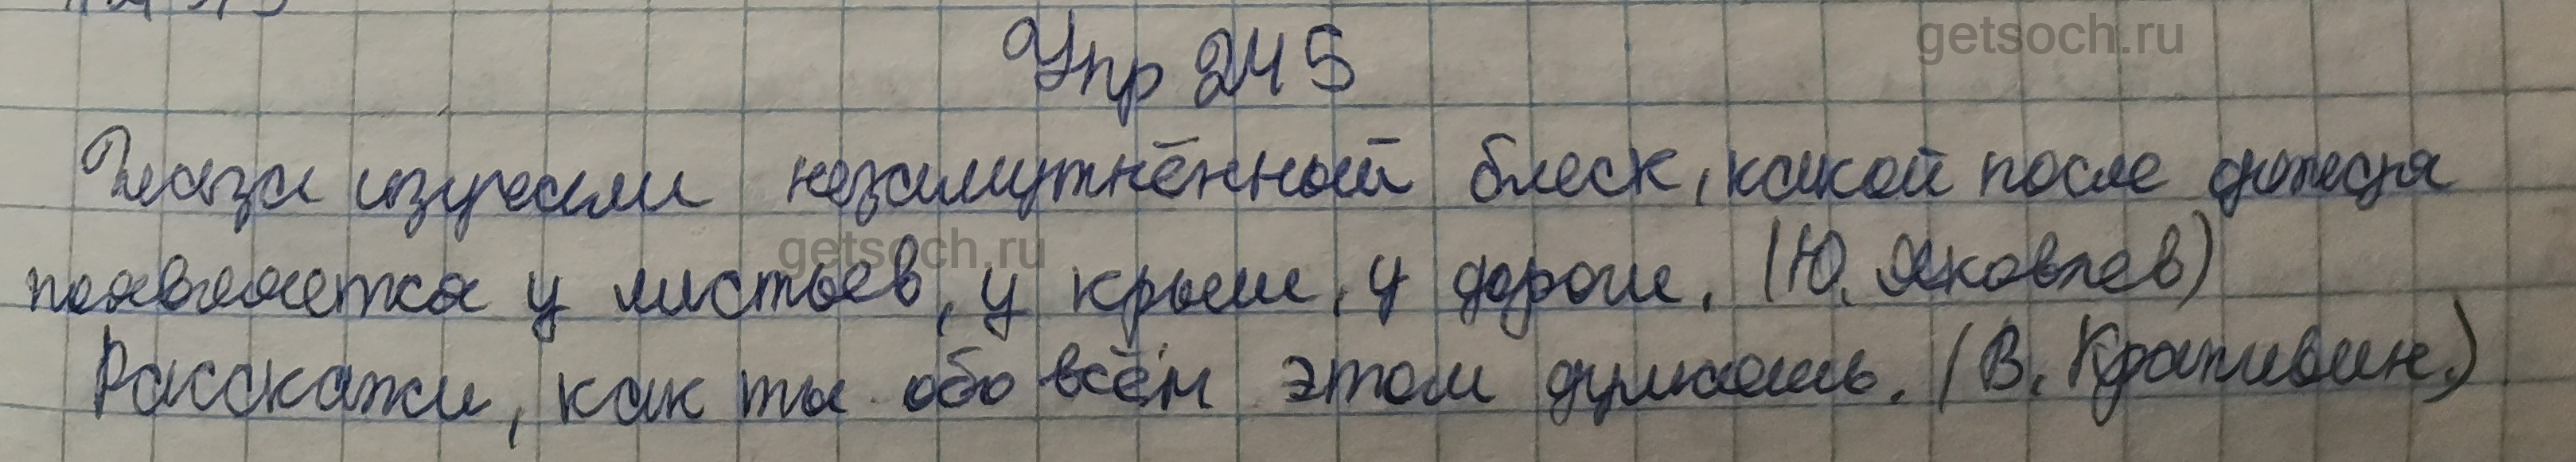 getsoch.ru
Упр 245
Глаза излучали незамутнённый блеск, какой после дождя
getsoch.ru
появляетка у листьев, у крыш, у дороги. (Ю. Яковлев)
Расскажи, как ты обо всём этом думаешь. (В. Крапивин.)